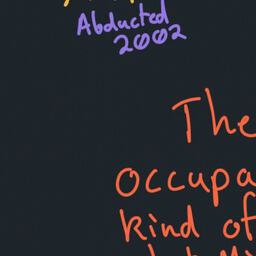 Abducted
2002
The
occupa
kind of